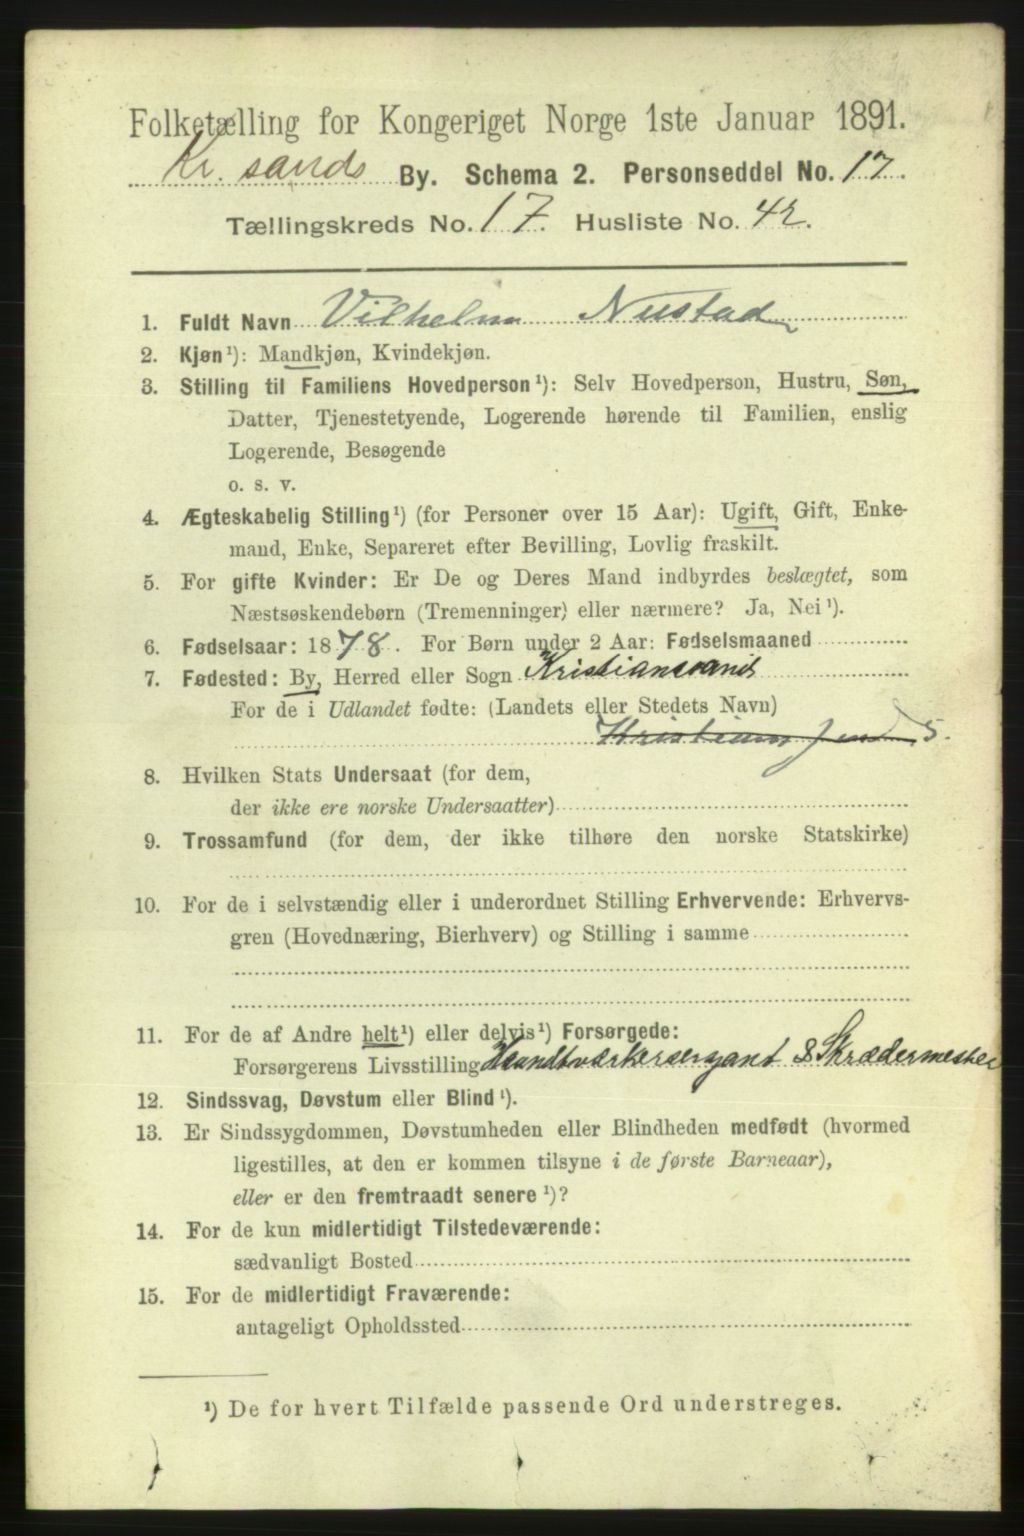 Folketælling for Kongeriget Norge 1ste Januar 1891.
Kr. sands By. Schema 2. Personseddel No. 17.
Tællingskreds No. 17. Husliste No. 42.
1. Fuldt Navn Vilhelm Nustad
2. Kjøn¹): Mandkjøn, Kvindekjøn.
3. Stilling til Familiens Hovedperson¹): Selv Hovedperson, Hustru, Søn,
Datter, Tjenestetyende, Logerende hørende til Familien, enslig
Logerende, Besøgende
o. s. v.
4. Ægteskabelig Stilling¹) (for Personer over 15 Aar): Ugift, Gift, Enke-
mand, Enke, Separeret efter Bevilling, Lovlig fraskilt.
5. For gifte Kvinder: Er De og Deres Mand indbyrdes beslægtet, som
Næstsøskendebørn (Tremenninger) eller nærmere? Ja, Nei¹).
6. Fødselsaar: 1878. For Børn under 2 Aar: Fødselsmaaned
7. Fødested: By, Herred eller Sogn Kristianssand
For de i Udlandet fødte: (Landets eller Stedets Navn)
5.
8. Hvilken Stats Undersaat (for dem,
der ikke ere norske Undersaatter)
9. Trossamfund (for dem, der ikke tilhøre den norske Statskirke)
10. For de i selvstændig eller i underordnet Stilling Erhvervende: Erhvervs-
gren (Hovednæring, Bierhverv) og Stilling i samme
11. For de af Andre helt¹) eller delvis¹) Forsørgede:
Forsørgerens Livsstilling Haandtværkersergant & Skrædermester
12. Sindssvag, Døvstum eller Blind¹).
13. Er Sindssygdommen, Døvstumheden eller Blindheden medfødt (hvormed
ligestilles, at den er kommen tilsyne i de første Barneaar),
eller er den fremtraadt senere¹)?
14. For de kun midlertidigt Tilstedeværende:
sædvanligt Bosted
15. For de midlertidigt Fraværende:
antageligt Opholdssted
¹) De for hvert Tilfælde passende Ord understreges.